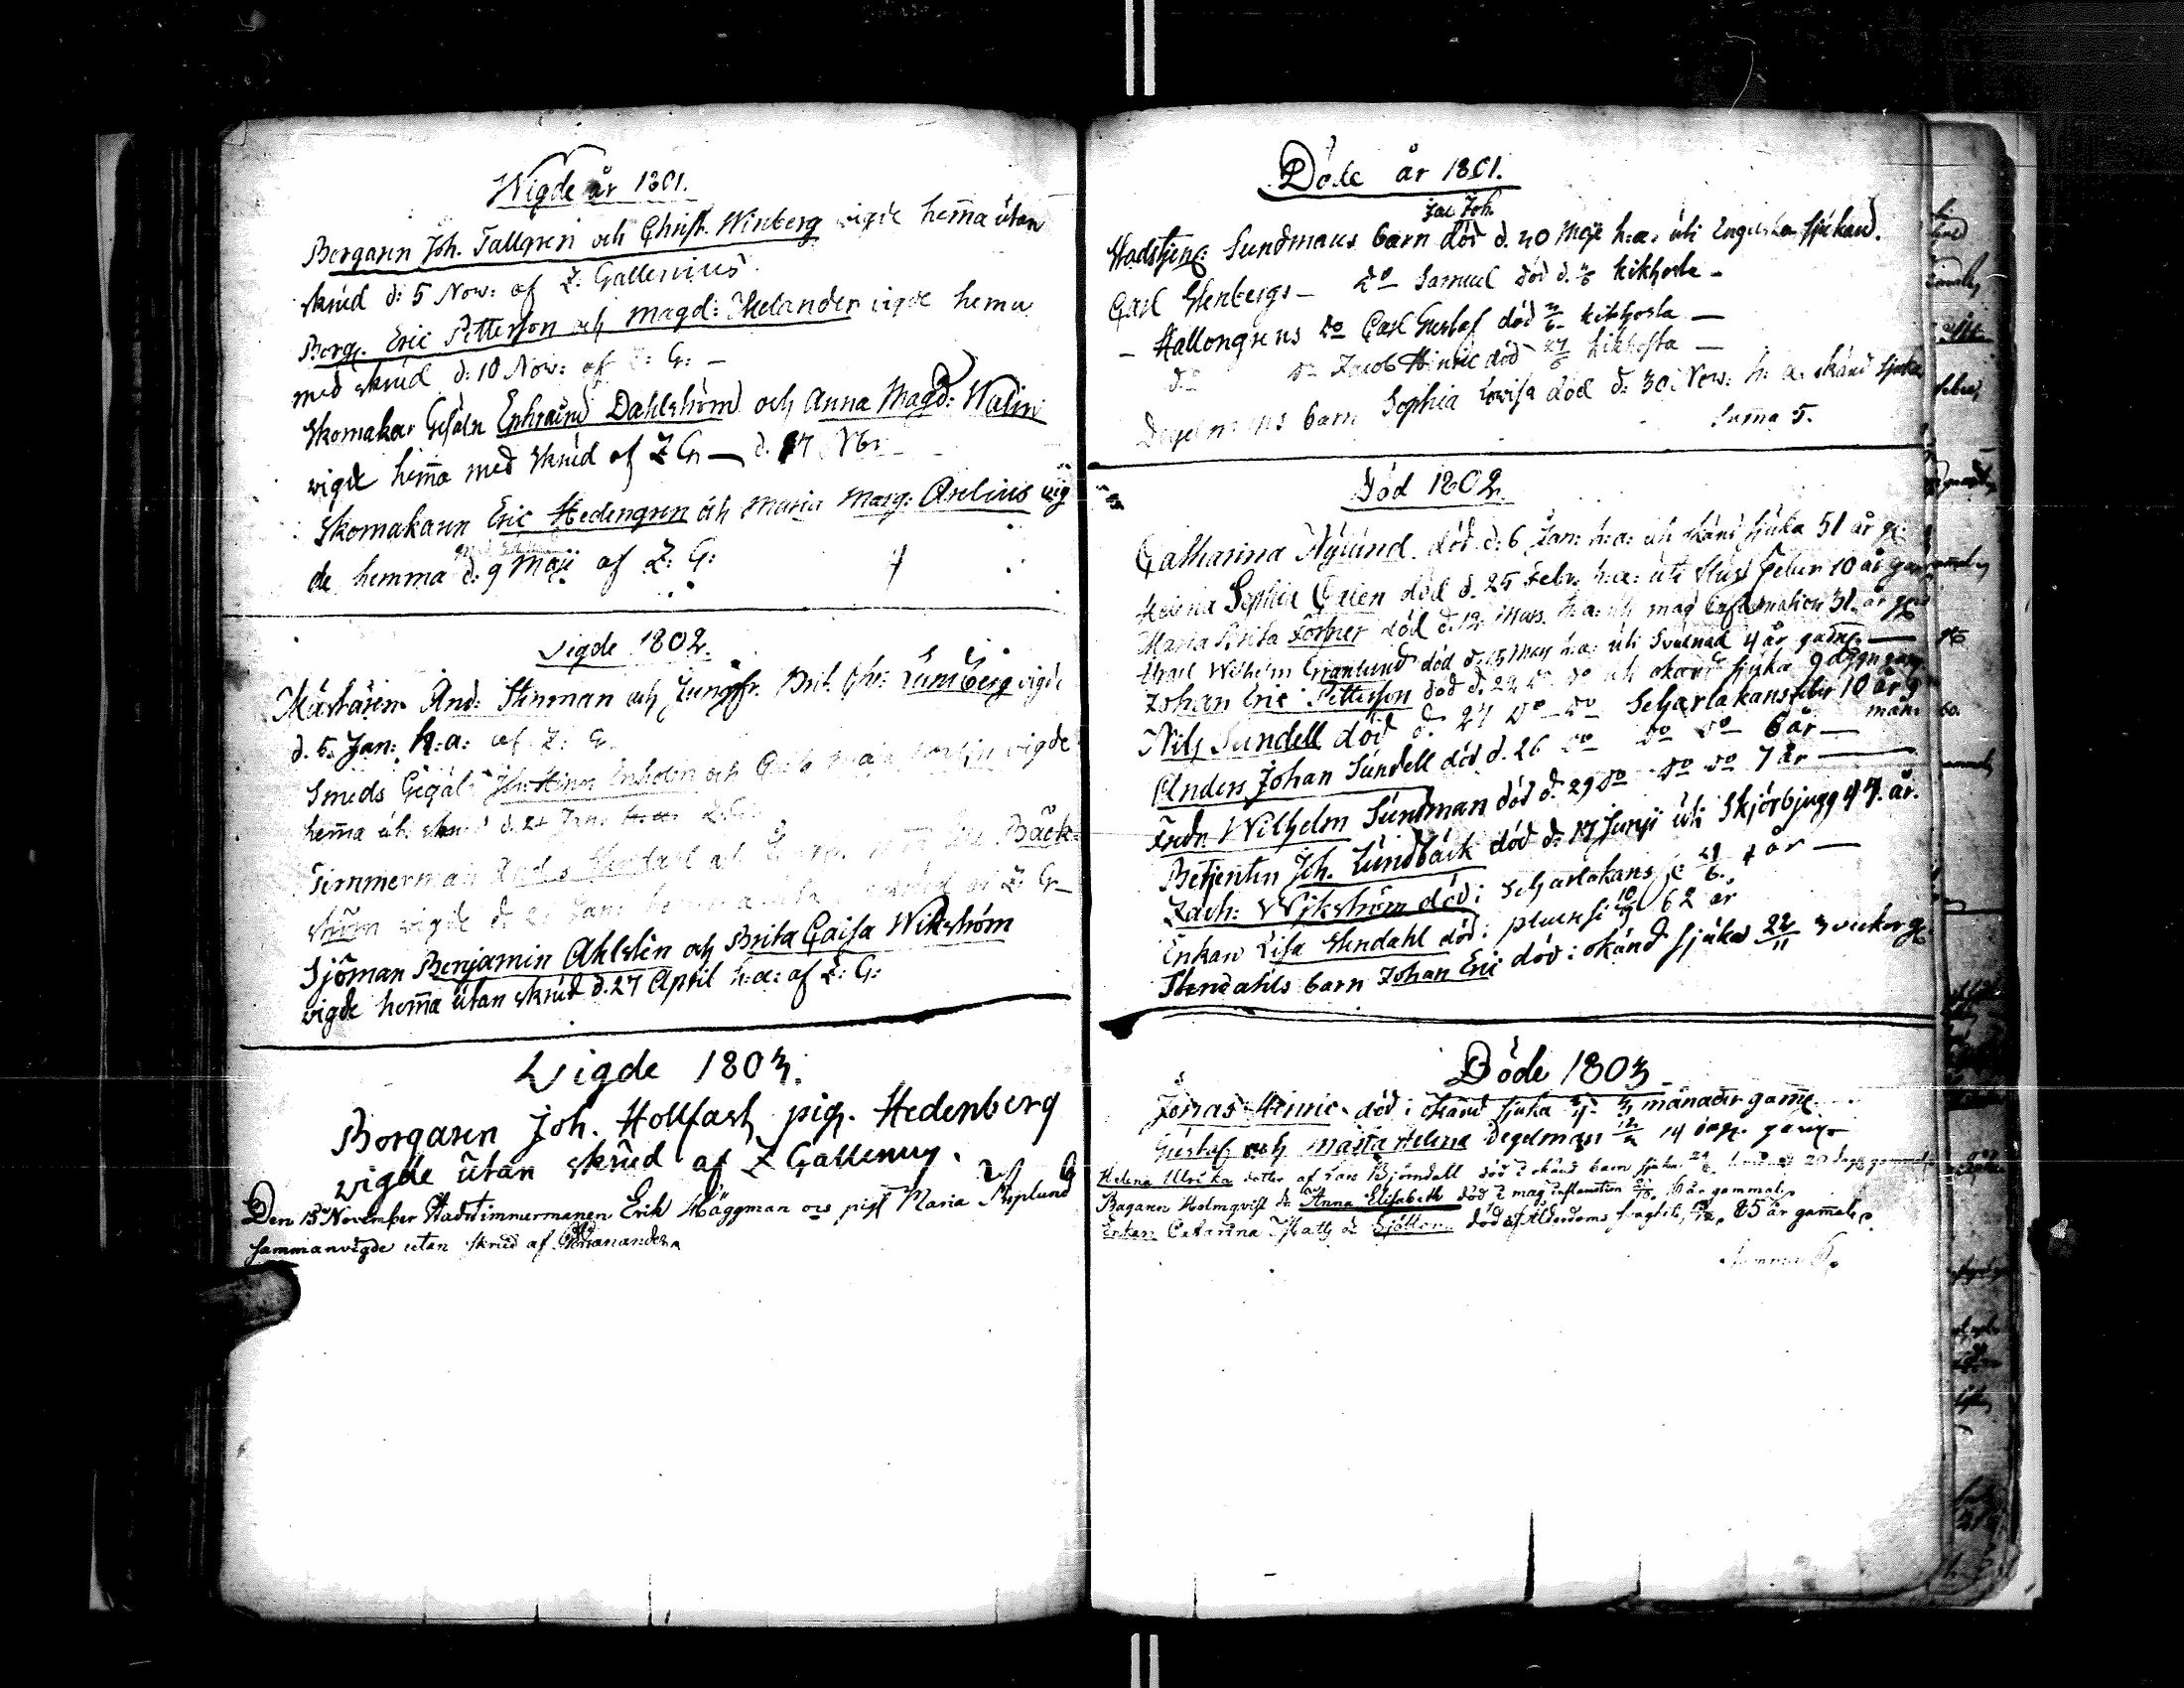 Wigde år 1801.
Borgaren Joh. Tallgren och Christ. Winberg vigde hem̄a utan
skrud d: 5 Nov: af Z: Gallenius
Borg. Eric Petterson och Magd: Helander vigde hema
med skrud d: 10 Nov: af Z: G: –
Skomakar Gesäln Ephraim Dahlström och Anna Magd: Walin
vigde hem̄a med skrud af Z G: – d. 17
Skomakaren Eric Hedengren och Maria Marg: Arelius vig
de hemma d: 9 Maji af Z: G: 4
Vigde 1802.
And: Stenman och Jungfr. Brit. Chr: Lundberg vigde
d. 5 Jan: h: a: af Z: G.
Smeds och vigde
hem̄a
Timmerman Bäck
ström vigde d. Jan: af Z: G–
Sjöman Benjamin Ahlsten och Brita Caisa Wikström
vigde hem̄a utan skrud d. 27 April h: a: af Z: G:
Vigde 1803.
Borgaren Joh. Hollfast pig. Hedenberg
vigde utan skrud af Z Gallenius.
Den 13 November Stadstimmermanen Erik Häggman och pig. Maria Asplund
sammanvigde utan skrud af
Döde år 1801.
Jac Joh.
Stadstjen: Sundmans barn död d. 20 Maji h: a: uti Engelska sjukan.
Carl Stenbergs – do Samuel död d. kikhosta –
– Hallongrens do Carl Gustaf död kikhosta –
do do Jacob Hinric död 27/6 kikhosta –
Degelmans barn Sophia Lovisa död d: 30 Nov: h: a: okänd sjuka
Sum̄a 5.
Död 1802.
Catharina Nylund död d: 6 Jan: h: a: uti okänd sjuka 51 år g:
Helena Sophia död d. 25 Febr. h: a: uti feber 10 år gam
Maria Brita död d. 12 Mars h: a: uti mag Inflamation 31. år g
Wilhelm Granlund död d. 15 May h: a: uti Svulnad 4 år gam̄e. –
Johan Eric Petterson död d. 22 do do uti okänd sjuka 9 dygn gam
Nils Sundell död d. 27 do do Scharlakansfeber 10 år g
Anders Johan Sundell död d. 26 do do do 6 år –
Fredr. Wilhelm Sundman död d. 29 do do do 7 år –
Betjenten Joh. Lundbäck död d: 17 Junji uti Skjörbjugg 47. år.
Zach: Wikström död i Scharlakans fe 21/6. 4 år –
Enkan Lisa Stendahl död i pleuresi 62 år
Stendahls barn Johan Eric död i okänd sjuka 22/11 3 veckor g:
Döde 1803
Jonas Hinric död i okänd sjuka 3 månader gam̄e.
Gustaf och Maria Helena Degelman 14 dag. gam̄e
Helena Ulrika dotter af Lars Björndell död i okänd barn sjuka 20 dagar gammal
Bagaren Holmqvist dr Anna Elisabeth död i mag inflamation år gammal.
Enkan Catarina död af Ålderdoms 85 år gam̄al.
Summa